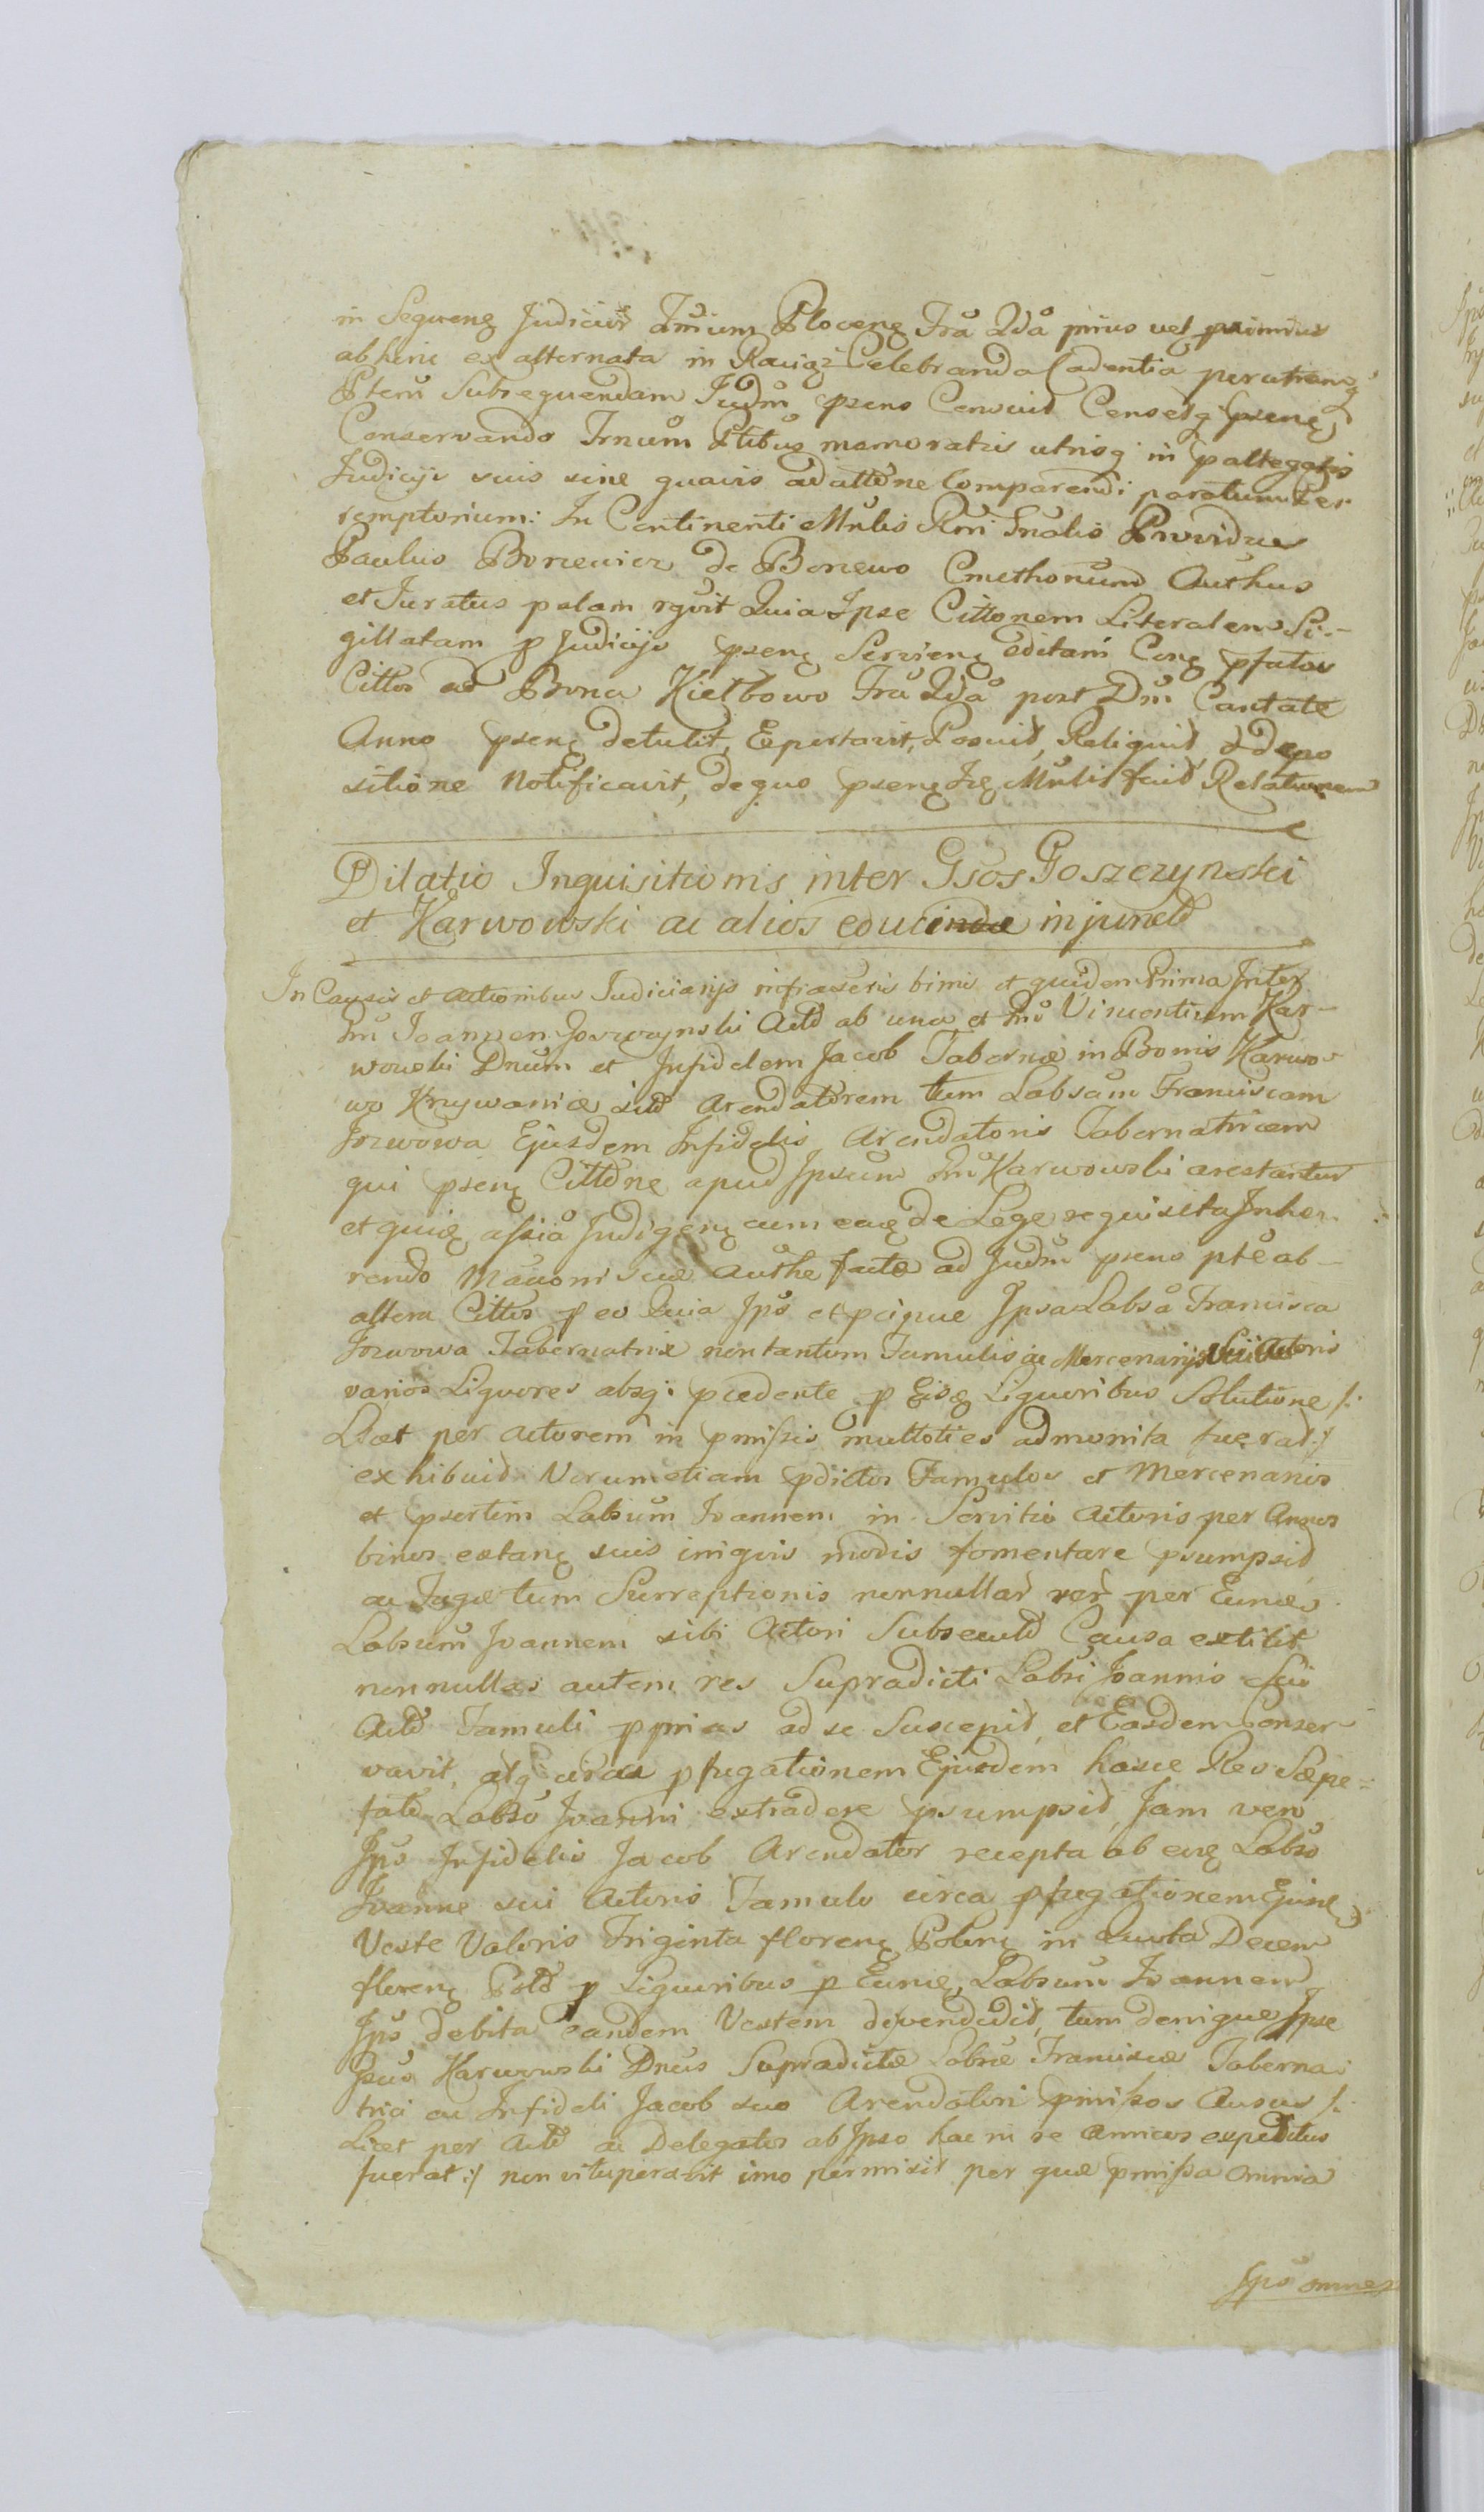 in Sequeng Judiciur Trnium Ploceng Fra 2da prius vel primius
abhinc ex alternata in Raciąż Celebranda Cadentia perutramq
Ptem Subsequendam Judm psens Censuid Censetq psenę
Conservando Trnum Ptibus memoratis utrisq in palteggtis
Judicijs suis sine quavis adattone Comparendi paratum per
remptorium: In Continenti Mnlis Rni Gnalis Providus
Paulus Boncewicz de Boncewo Cmethonum Authus
et Juratus palam rgvit Quia Ipse Cittonem Literalem Si-
gillatam p Judicijs psenę Servienę Editam Conę pfatos
Cittos ad Bona Kiełbowo Fra 2da post Dm Cantate
Anno psenę detulit, Eportavit, Posuid, Reliquid, & depo
sitione Notificavit, de quo psenę Suę Mnlis fuid Relationem
Dilatio Inquisitionis inter Gsos Goszczynski
et Karwowski ac alios educinda injuncta
In Causis et actionibus Judiciarijs infrascris binis et quidem Prima Inter
Gm Joannem Goszczynski Actd ab una et Gm Vincentium Kar-
wowski Dnum et Infidelem Jacob Tabernæ in Bonis Karwo-
wo Krzywanice sitd Arendatorem tum Labsam Franciscam
Jozwowa Ejusdem Infidelis Arendatoris Tabernatricem
qui psenę Cittone apud Ipsum Gm Karwowski arestantur
et quię assia Judigenę cum eaę de Lege requisita Inhæ-
rendo Mauoni suæ Authe factæ ad Judm psens pte ab-
altera Cittos p eo Quia Ips et pcipue Ipsa Labsa Francisca
Jozwowa Tabernatrix non tantum Famulis ac Mercenarijs sui Actoris
varios Liquores absq: pcedente p Eisę Liquoribus Solutione /:
Licet per Actorem in pmissis multoties admonita fuerat :/
exhibuid Verumetiam pdictos Famulos et Mercenarios
et psertim Labsum Joannem in Servitio Actoris per Annos
binos extanę suis iniquis modis fomentare psumpsid
ac Fugæ tum Surreptionis nonnullar rer per Eumę
Labsum Joannem sibi Actori Subsecutd Causa extitit
nonnullas autem res Supradicti Labsi Joannis sui
Actd Famuli pprias ad se Suscepid, et Easdem Conser-
vavit, atq circa pfugationem Ejusdem hasce Res Sæpe-
fato Labso Joanni extradere psumpsid, Jam vero
Ips Infidelis Jacob Arendator recepta ab eoę Labso
Joanne sui Actoris Famulo circa pfugationem Ejusę
Veste Valoris Triginta florenę Polonę in Quota Decem
florenę Pold p Liquoribus p Eumę Labsum Joannem
Ips debita eandem Vestem divendidid, tum denique Ipse
Gsus Karwowski Dnus Supradictæ Labsæ Franciscæ Taberna-
trici ac Infideli Jacob suo Arendatori pmissos Ausus /:
Licet per Actd ac Delegatos ab Ipso hac in re Amicos expeditus
fuerat :/ non vituperavit imo permisit per quæ pmissa omnia
Ips omnes